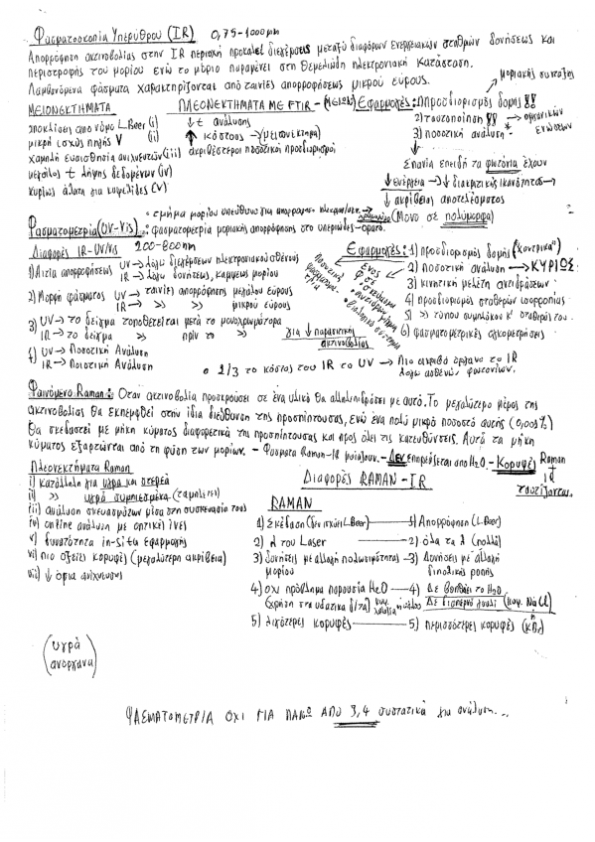 Φασματοσκοπία Υπερύθρου (IR) 0,75-1000μm
Απορρόφηση ακτινοβολίας στην IR περιοχή προκαλεί διεγέρσεις μεταξύ διαφόρων ενεργειακών σταθμών δονήσεως και
περιστροφής του μορίου ενώ το μόριο παραμένει στη θεμελιώδη ηλεκτρονιακή κατάσταση.
Λαμβανόμενα φάσματα χαρακτηρίζονται από ταινίες απορροφήσεως μικρού εύρους.
μοριακής σύνταξης
ΜΕΙΟΝΕΚΤΗΜΑΤΑ
αποκλίσεις από νόμο L.Beer (i)
μικρή ισχύς πηγής (ii)
χαμηλή ευαισθησία ανιχνευτών (iii)
μεγάλος t λήψης δεδομένων (iv)
κυρίως άλατα για κυψελίδες (v)
ΠΛΕΟΝΕΚΤΗΜΑΤΑ ΜΕ FTIR
↓ t ανάλυσης
↑ κόστους → (μειονέκτημα)
ακριβέστεροι ποσοτικοί προσδιορισμοί
Εφαρμογές: 1) Προσδιορισμός δομής !!
2) ταυτοποίηση !! → οργανικών ενώσεων
3) ποσοτική ανάλυση *
Σπάνια επειδή τα φωτόνια έχουν
↓ ενέργεια → ↓ διακριτικής ικανότητας →
↓ ακρίβειας αποτελέσματος
(Μόνο σε πολύμορφα)
Φασματομετρία (UV-Vis): φασματομετρία μοριακής απορρόφησης στο υπεριώδες-ορατό.
Διαφορές IR-UV/vis 200-800nm
1) Αιτία απορροφήσεως UV → λόγω διεγέρσεων ηλεκτρονιακού σθένους
IR → λόγω δονήσεων, κάμψεως μορίου
2) Μορφή φάσματος UV → ταινίες απορρόφησης μεγάλου εύρους
IR → » » μικρού εύρους
3) UV → το δείγμα τοποθετείται μετά το μονοχρωμάτορα
IR → το δείγμα » πριν το »
4) UV → Ποσοτική Ανάλυση
IR → Ποιοτική Ανάλυση
για ↓ παρασιτικής ακτινοβολίας
Εφαρμογές: 1) προσδιορισμός δομής "κεντρικά"
2) Ποσοτική ανάλυση → ΚΥΡΙΩΣ
3) κινητική μελέτη αντιδράσεων
4) προσδιορισμός σταθερών ισορροπίας
5) » τύπου συμπλόκου κ' σταθεράς του
6) φασματομετρικές ογκομετρήσεις
• 2/3 το κόστος του IR το UV → Πιο ακριβό όργανο το IR
λόγω ασθενών φωτονίων.
Φαινόμενο Raman: Όταν ακτινοβολία προσκρούσει σε ένα υλικό θα αλληλεπιδράσει με αυτό. Το μεγαλύτερο μέρος της
ακτινοβολίας θα εκπεμφθεί στην ίδια διεύθυνση της προσπίπτουσας, ενώ ένα πολύ μικρό ποσοστό αυτής (0,001%)
θα σκεδαστεί με μήκη κύματος διαφορετικά της προσπίπτουσας και προς όλες τις κατευθύνσεις. Αυτά τα μήκη
κύματος εξαρτώνται από τη φύση των μορίων. - Φάσματα Raman-IR μοιάζουν. - Δεν επηρεάζεται από H₂O. - Κορυφές Raman + IR ταυτίζονται.
Πλεονεκτήματα Raman
i) κατάλληλη για υγρά και στερεά
ii) » υγρά συμπιεσμένα (ταμπλέτες)
iii) ανάλυση σκευασμάτων μέσα στη συσκευασία τους
iv) online ανάλυση με οπτικές ίνες
v) δυνατότητα in-situ εφαρμογής
vi) πιο οξείες κορυφές (μεγαλύτερη ακρίβεια)
vii) ↓ όρια ανίχνευσης
Διαφορές RAMAN - IR
RAMAN
1) Σκέδαση (δεν ισχύει L.Beer) — 1) Απορρόφηση (L.Beer)
2) λ του Laser — 2) όλα τα λ (πολλά)
3) δονήσεις με αλλαγή πολωσιμότητας μορίου — 3) Δονήσεις με αλλαγή διπολικής ροπής
4) όχι πρόβλημα παρουσία H₂O — 4) Δε βοηθάει το H₂O
(χρήση στα υδατικά δ/τα)
5) λιγότερες κορυφές — 5) περισσότερες κορυφές (KBr)
(υγρά ανόργανα)
ΦΑΣΜΑΤΟΜΕΤΡΙΑ ΟΧΙ ΓΙΑ ΠΑΝΩ ΑΠΟ 3,4 συστατικά για ανάλυση...